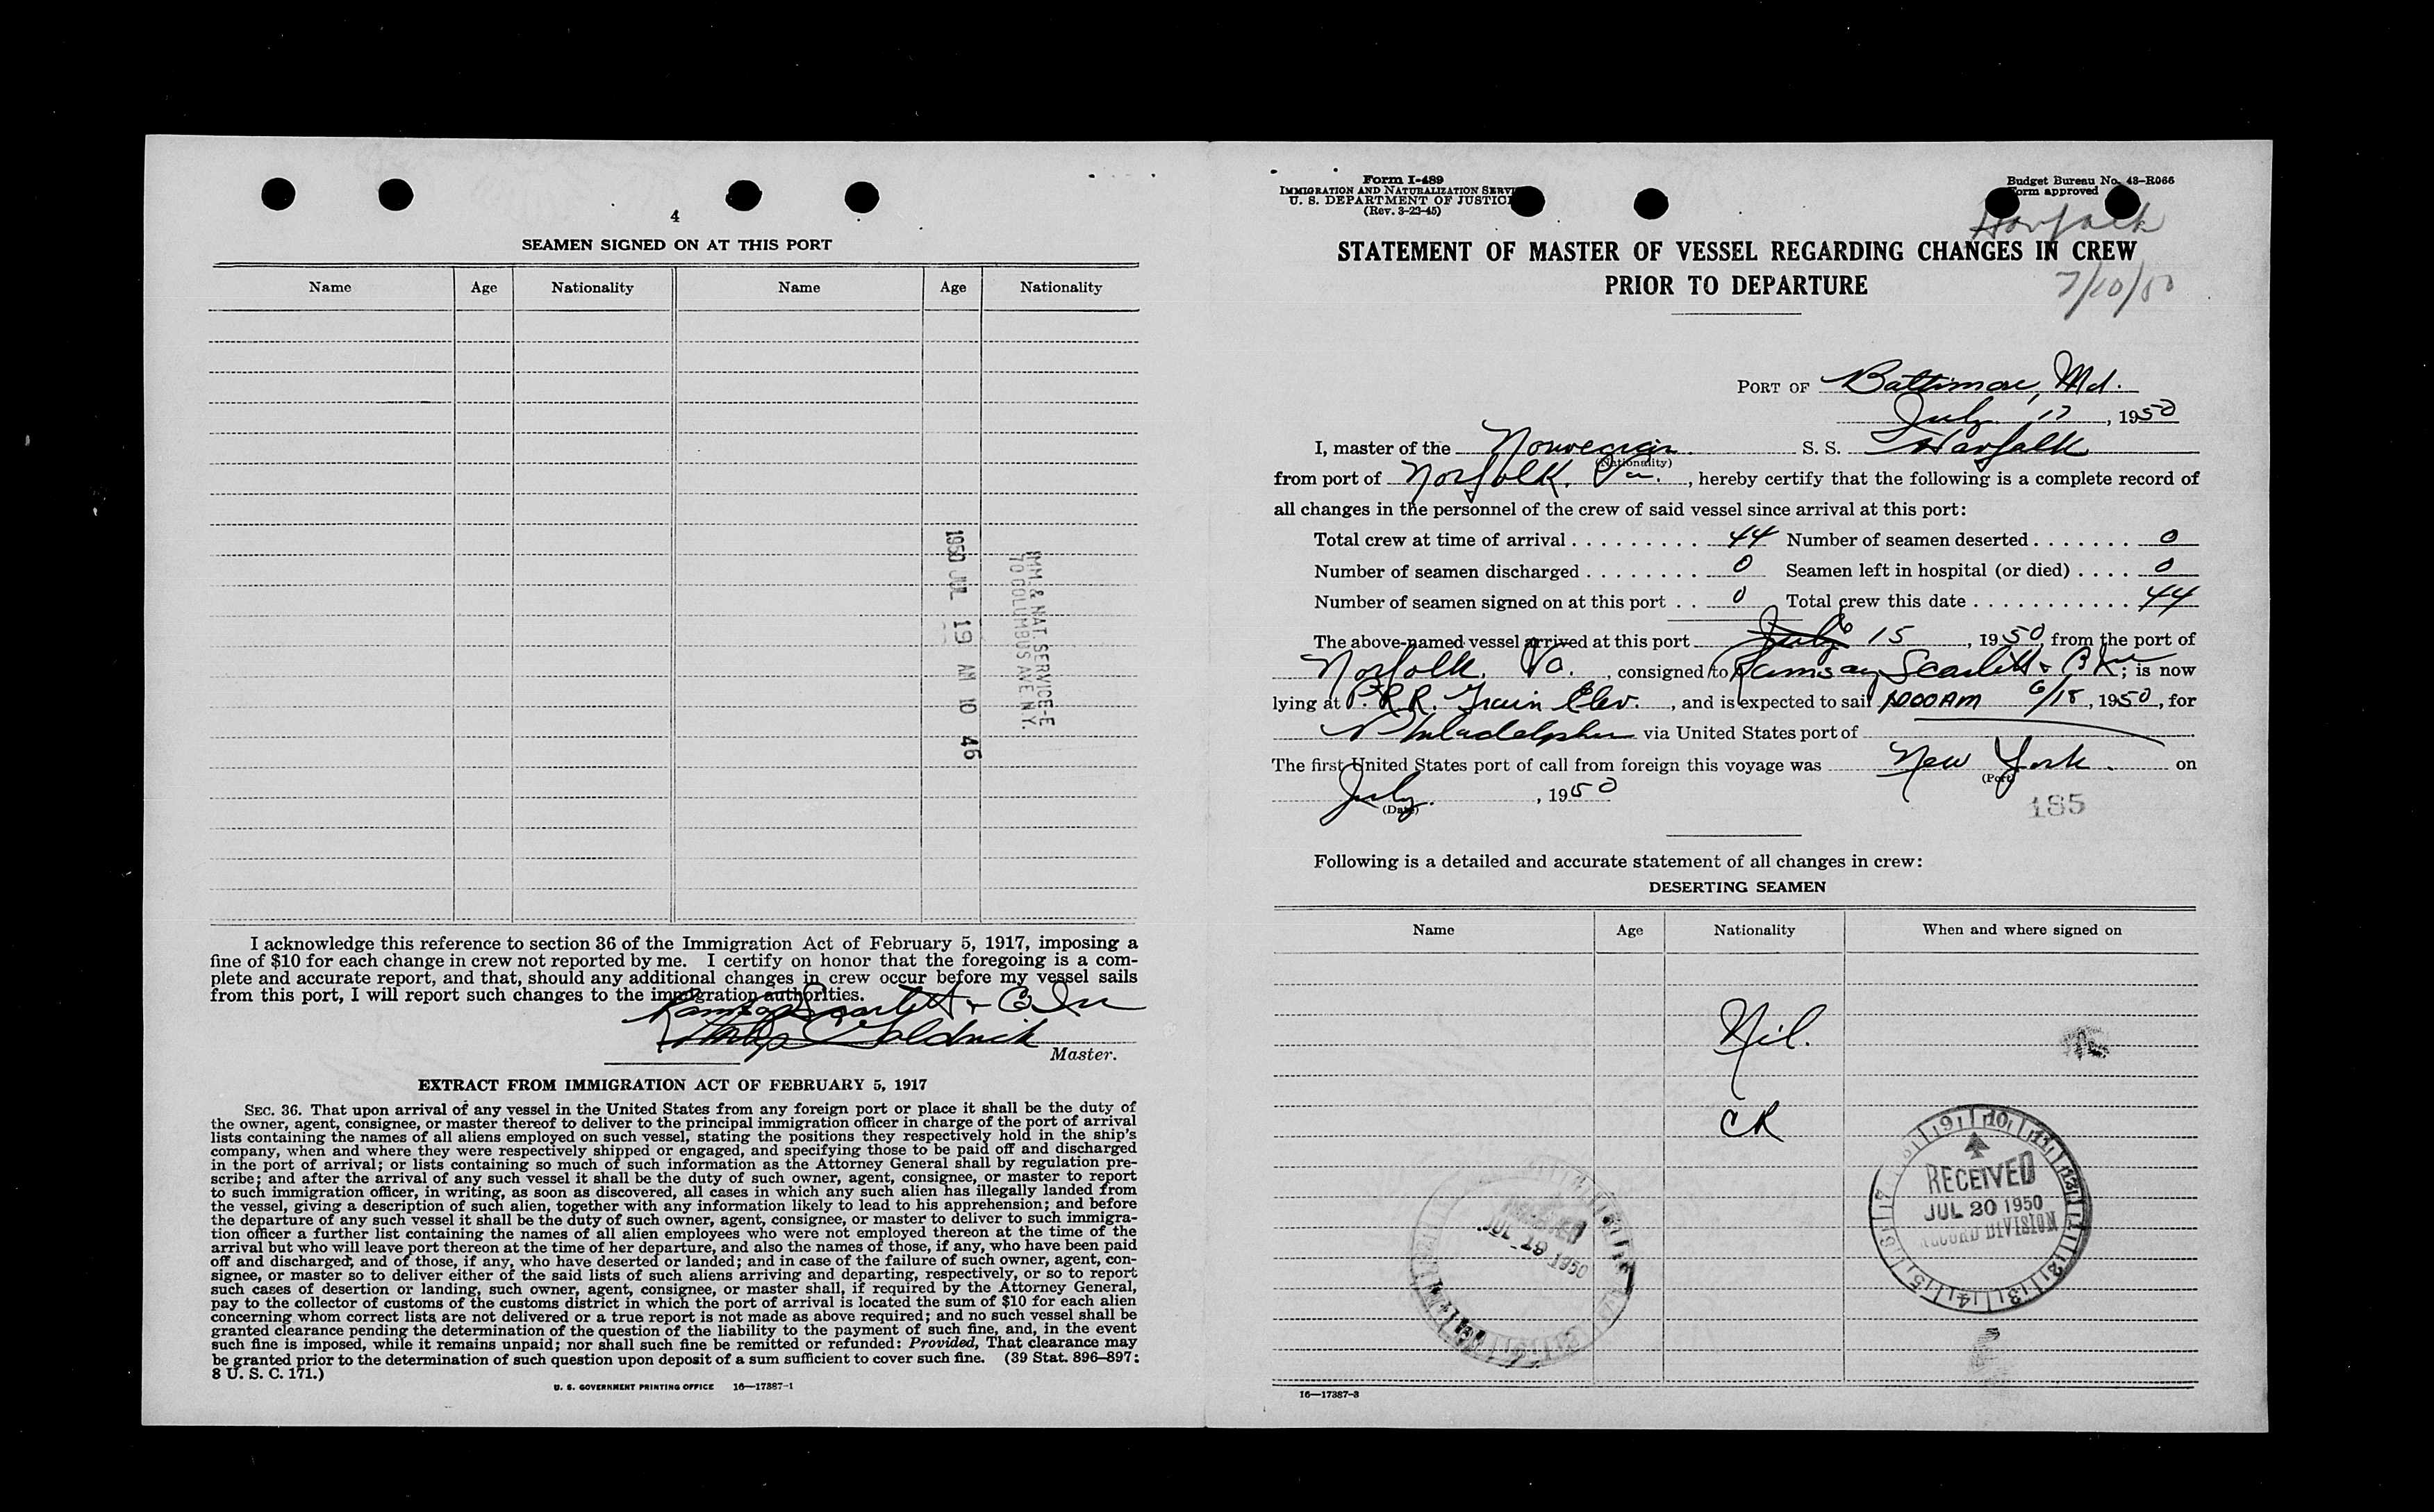 4
SEAMEN SIGNED ON AT THIS PORT
Name Age Nationality Name Age Nationality
1950 JUL 19 AM 10 46
IMM & NAT. SERVICE-E
70 COLUMBUS AVE N.Y.
I acknowledge this reference to section 36 of the Immigration Act of February 5, 1917, imposing a
fine of $10 for each change in crew not reported by me. I certify on honor that the foregoing is a com-
plete and accurate report, and that, should any additional changes in crew occur before my vessel sails
from this port, I will report such changes to the immigration authorities.
Ramsay Scarlett & Co Inc
Philip Goldnick
Master.
EXTRACT FROM IMMIGRATION ACT OF FEBRUARY 5, 1917
SEC. 36. That upon arrival of any vessel in the United States from any foreign port or place it shall be the duty of
the owner, agent, consignee, or master thereof to deliver to the principal immigration officer in charge of the port of arrival
lists containing the names of all aliens employed on such vessel, stating the positions they respectively hold in the ship's
company, when and where they were respectively shipped or engaged, and specifying those to be paid off and discharged
in the port of arrival; or lists containing so much of such information as the Attorney General shall by regulation pre-
scribe; and after the arrival of any such vessel it shall be the duty of such owner, agent, consignee, or master to report
to such immigration officer, in writing, as soon as discovered, all cases in which any such alien has illegally landed from
the vessel, giving a description of such alien, together with any information likely to lead to his apprehension; and before
the departure of any such vessel it shall be the duty of such owner, agent, consignee, or master to deliver to such immigra-
tion officer a further list containing the names of all alien employees who were not employed thereon at the time of the
arrival but who will leave port thereon at the time of her departure, and also the names of those, if any, who have been paid
off and discharged, and of those, if any, who have deserted or landed; and in case of the failure of such owner, agent, con-
signee, or master so to deliver either of the said lists of such aliens arriving and departing, respectively, or so to report
such cases of desertion or landing, such owner, agent, consignee, or master shall, if required by the Attorney General,
pay to the collector of customs of the customs district in which the port of arrival is located the sum of $10 for each alien
concerning whom correct lists are not delivered or a true report is not made as above required; and no such vessel shall be
granted clearance pending the determination of the question of the liability to the payment of such fine, and, in the event
such fine is imposed, while it remains unpaid; nor shall such fine be remitted or refunded: Provided, That clearance may
be granted prior to the determination of such question upon deposit of a sum sufficient to cover such fine. (39 Stat. 896–897;
8 U. S. C. 171.)
U. S. GOVERNMENT PRINTING OFFICE 16—17387-1
Form I-489
IMMIGRATION AND NATURALIZATION SERVI
U. S. DEPARTMENT OF JUSTIC
(Rev. 3-23-45)
Budget Bureau No. 43-R066
Form approved
Havfalk
STATEMENT OF MASTER OF VESSEL REGARDING CHANGES IN CREW
PRIOR TO DEPARTURE
7/10/50
PORT OF Baltimore, Md.
July 17, 1950
I, master of the Norwegian S. S. Havfalk
(Nationality)
from port of Norfolk, Va., hereby certify that the following is a complete record of
all changes in the personnel of the crew of said vessel since arrival at this port:
Total crew at time of arrival . . . . . . . . . 44 Number of seamen deserted . . . . . . . 0
Number of seamen discharged . . . . . . . . 0 Seamen left in hospital (or died) . . . . 0
Number of seamen signed on at this port . . 0 Total crew this date . . . . . . . . . . . 44
The above-named vessel arrived at this port July 6 15, 1950, from the port of
Norfolk, Va., consigned to Ramsay Scarlett & Co Inc; is now
lying at P.R.R. Grain Elev., and is expected to sail 1000AM 6/18, 1950, for
Philadelphia via United States port of
The first United States port of call from foreign this voyage was New York. on
(Port)
July, 1950
(Date)
185
Following is a detailed and accurate statement of all changes in crew:
DESERTING SEAMEN
Name Age Nationality When and where signed on
Nil.
CR
RECEIVED
JUL 19 1950
RECEIVED
JUL 20 1950
RECORD DIVISION
16—17387-3